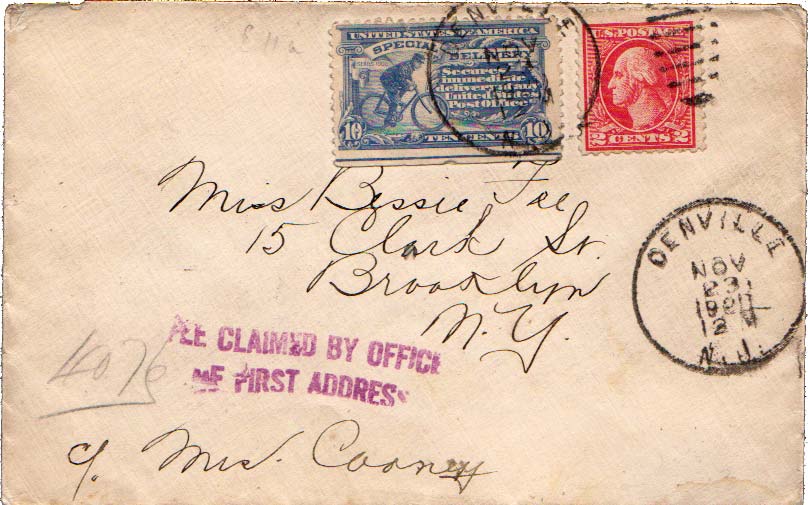 UNITED STATES OF AMERICA
SPECIAL DELIVERY
SERIES 1902
Secures
immediate
delivery at any
United States
Post Office
10 TEN CENTS 10
U.S. POSTAGE
2 CENTS 2
DENVILLE
NOV
N.
Miss Bessie Fee
15 Clark St.
Brooklyn
N.Y.
DENVILLE
NOV
23
12 M
N.J.
FEE CLAIMED BY OFFICE
OF FIRST ADDRESS
4076
c/. Mrs. Cooney